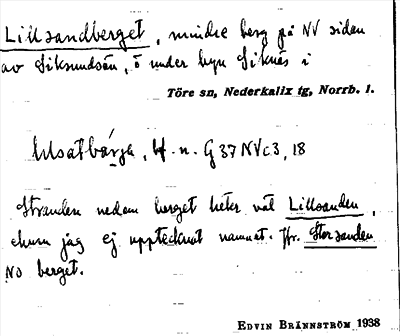 Lillsandberget, mindre berg på NV sidan
av Siksundsön, ö under byn Siknäs i
Töre sn, Nederkalix tg, Norrb. l.
lilsatbárja, bf. n. G 37 NV c3, 18
Stranden nedom berget heter väl Lillsanden,
ehuru jag ej upptecknat namnet. Jfr. Storsanden
NO berget.
EDVIN BRÄNNSTRÖM 1938